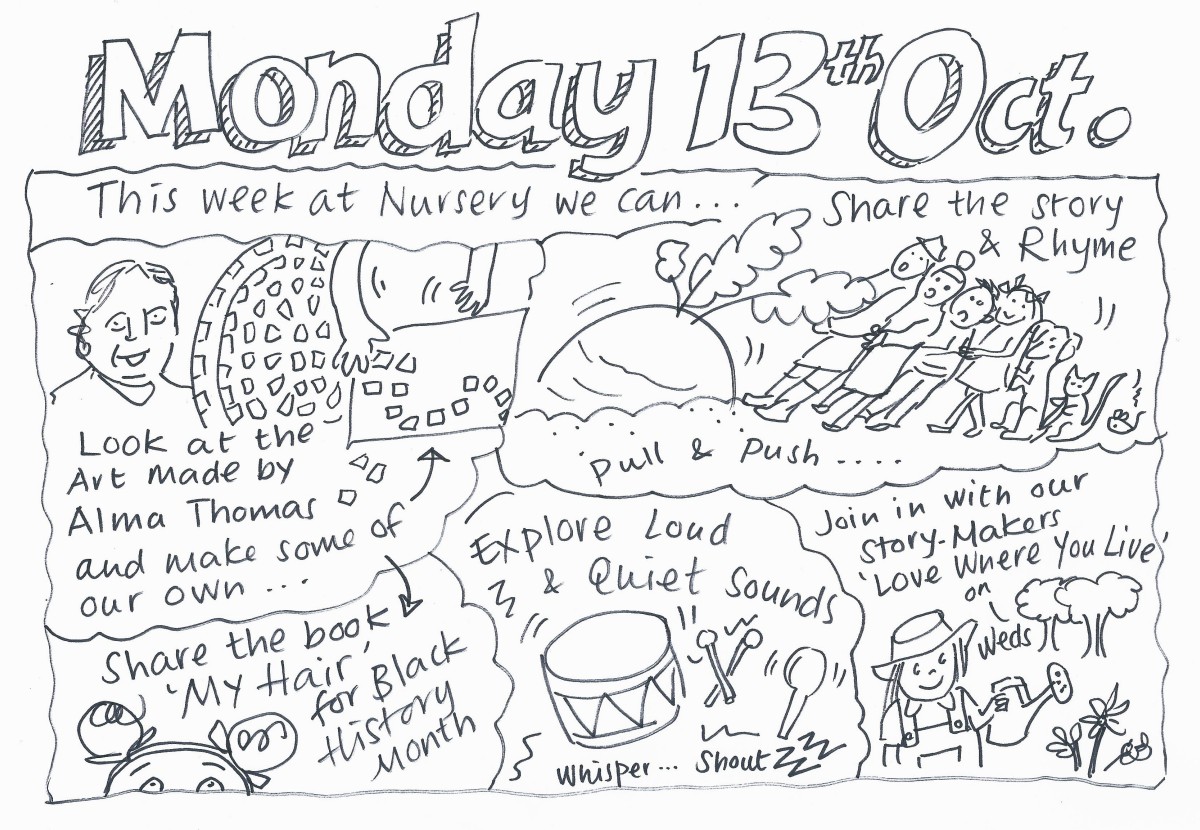 Monday 13th Oct.
This week at Nursery we can...
Share the story
& Rhyme
Pull & Push....
Look at the
Art made by
Alma Thomas
and make some of
our own...
Share the book
'My Hair'
for Black
History
Month
Explore Loud
& Quiet Sounds
Whisper... Shout
Join in with our
Story-Makers
'Love Where You Live'
on
Weds